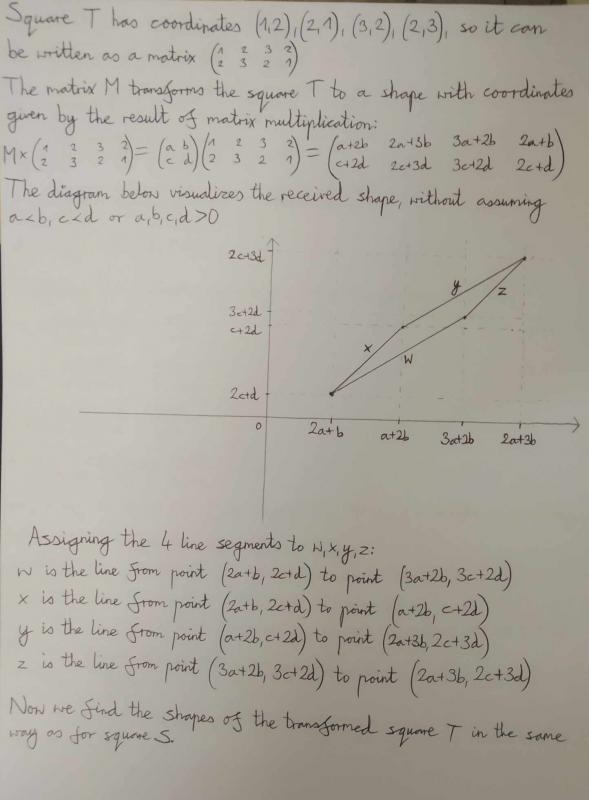 Square T has coordinates (1,2), (2,1), (3,2), (2,3), so it can
be written as a matrix (1 2 3 2
2 3 2 1)
The matrix M transforms the square T to a shape with coordinates
given by the result of matrix multiplication:
M × (1 2 3 2
2 3 2 1) = (a b
c d) (1 2 3 2
2 3 2 1) = (a+2b 2a+3b 3a+2b 2a+b
c+2d 2c+3d 3c+2d 2c+d)
The diagram below visualizes the received shape, without assuming
a<b, c<d or a,b,c,d>0
2c+3d
y
z
3c+2d
c+2d
x
w
2c+d
0
2a+b a+2b 3a+2b 2a+3b
Assigning the 4 line segments to w,x,y,z:
w is the line from point (2a+b, 2c+d) to point (3a+2b, 3c+2d)
x is the line from point (2a+b, 2c+d) to point (a+2b, c+2d)
y is the line from point (a+2b, c+2d) to point (2a+3b, 2c+3d)
z is the line from point (3a+2b, 3c+2d) to point (2a+3b, 2c+3d)
Now we find the shapes of the transformed square T in the same
way as for square S.